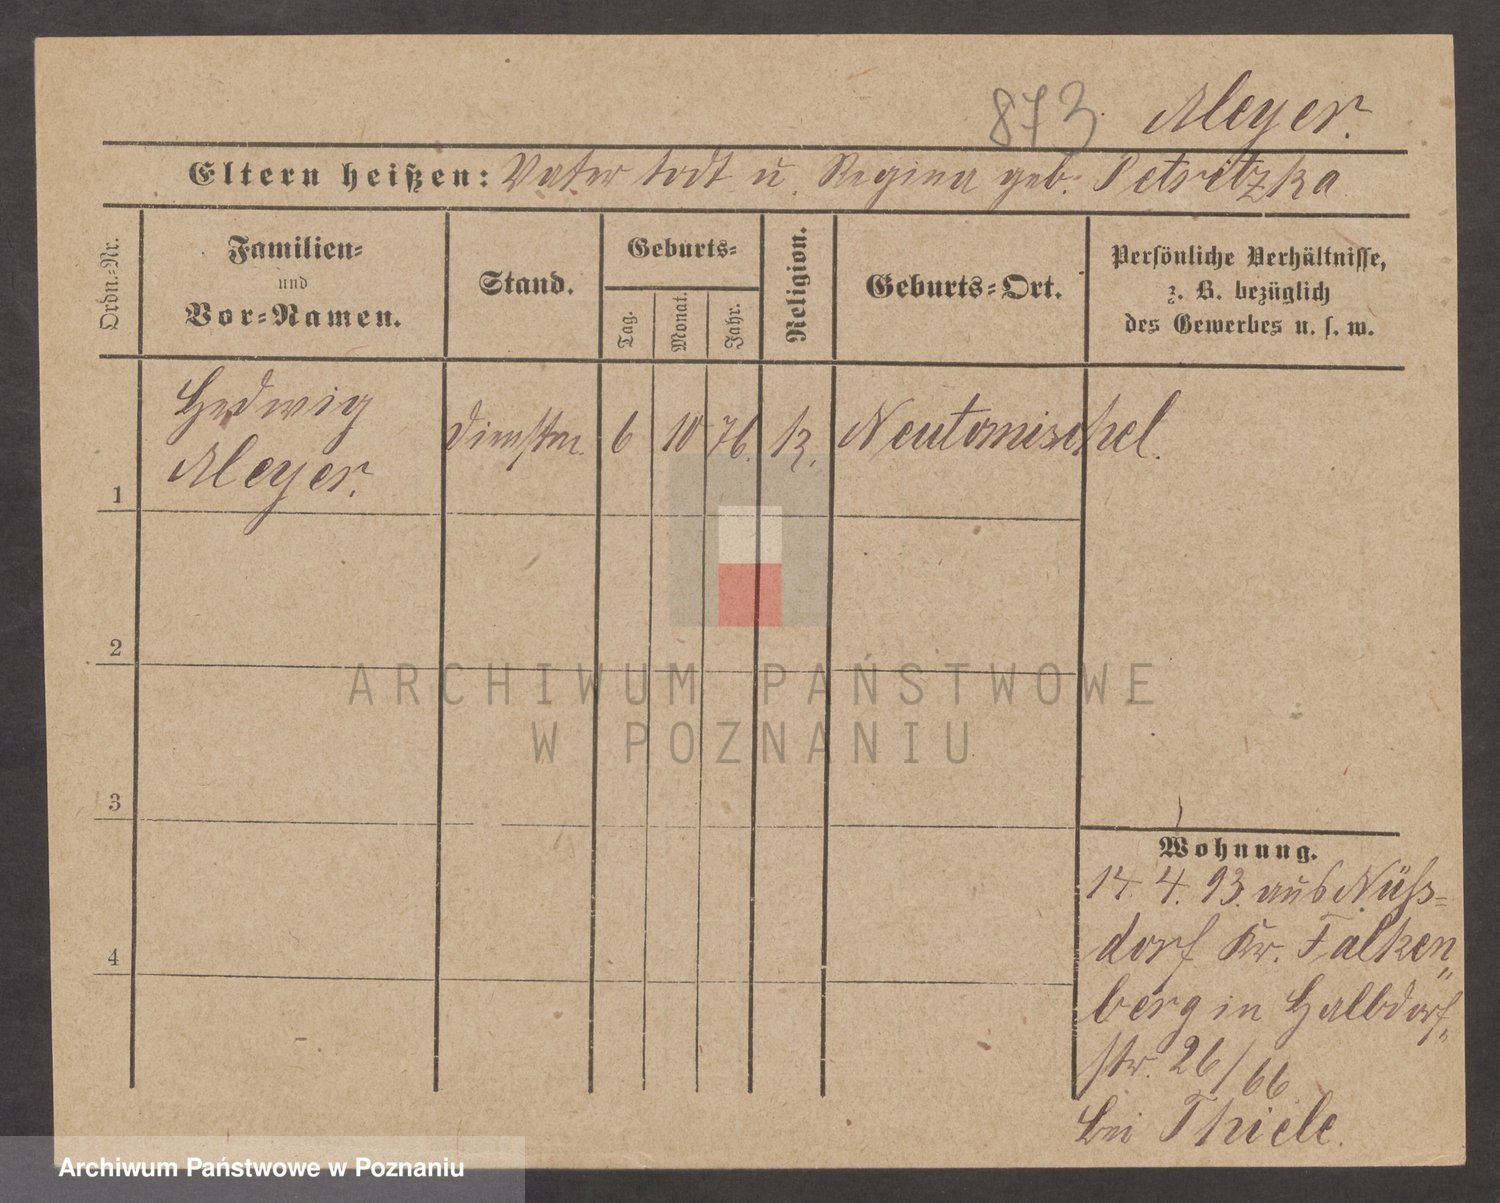 873. Meyer.
Eltern heißen: Vater todt u. Regina geb. Petritzka
Ordn.-Nr.
Familien-
und
Vor-Namen.
Stand.
Geburts-
Tag.
Monat.
Jahr.
Religion.
Geburts-Ort.
Persönliche Verhältnisse,
z. B. bezüglich
des Gewerbes u. s. w.
1
Hedwig
Meyer.
Dienstm.
6
10
76.
k.
Neutomischel.
2
3
4
Wohnung.
14. 4. 93. aus Nüss-
dorf Kr. Falken
berg in Halbdorf
str. 26/66
bei Thiele.
ARCHIWUM PAŃSTWOWE
W POZNANIU
Archiwum Państwowe w Poznaniu